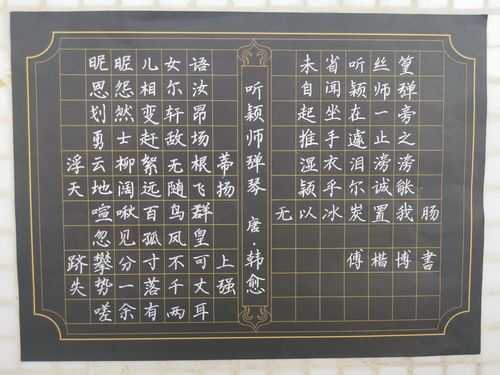 听颖师弹琴 唐·韩愈
昵昵儿女语
恩怨相尔汝
划然变轩昂
勇士赴敌场
浮云柳絮无根蒂
天地阔远随飞扬
喧啾百鸟群
忽见孤凤皇
跻攀分寸不可上
失势一落千丈强
嗟余有两耳
未省听丝篁
自闻颖师弹
起坐在一旁
推手遽止之
湿衣泪滂滂
颖乎尔诚能
无以冰炭置我肠
傅楷博书